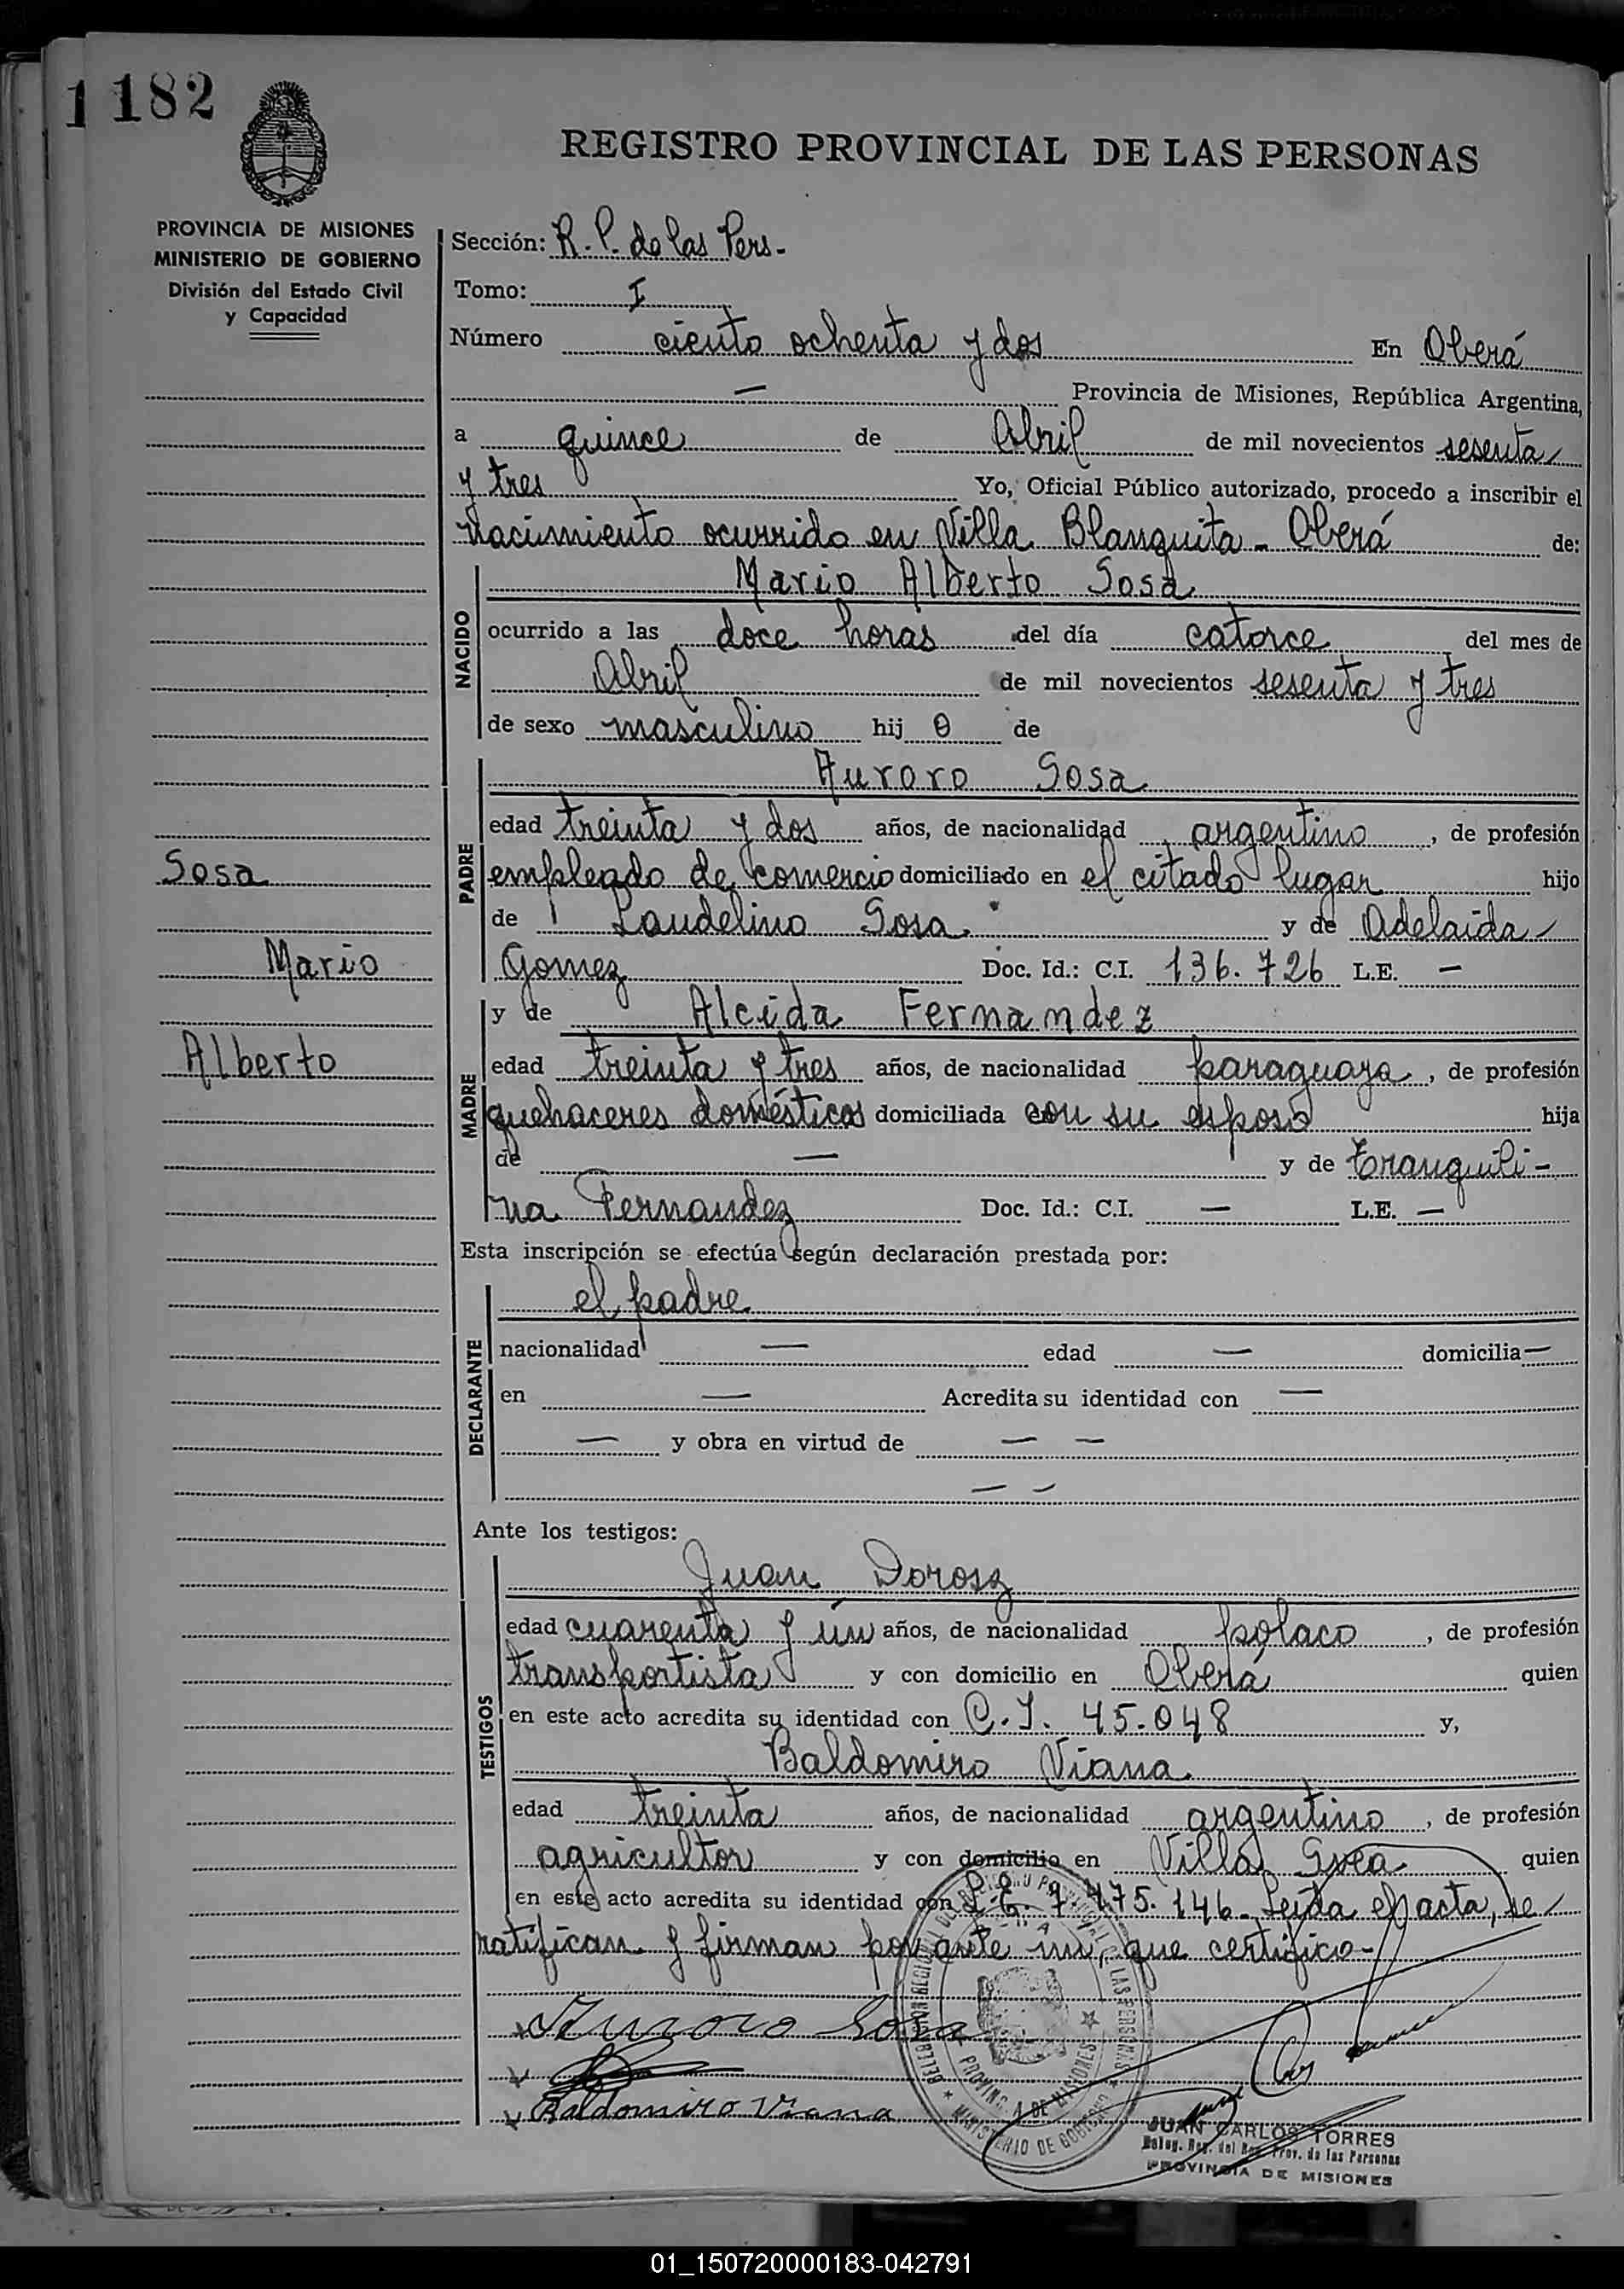 1 182
REGISTRO PROVINCIAL DE LAS PERSONAS
PROVINCIA DE MISIONES
MINISTERIO DE GOBIERNO
División del Estado Civil
y Capacidad
Sección: R. P. de las Pers-
Tomo: I
Número ciento ochenta y dos En Oberá
— Provincia de Misiones, República Argentina,
a quince de Abril de mil novecientos sesenta
y tres Yo, Oficial Público autorizado, procedo a inscribir el
nacimiento ocurrido en Villa Blanquita - Oberá de:
NACIDO
Mario Alberto Sosa
ocurrido a las doce horas del día catorce del mes de
Abril de mil novecientos sesenta y tres
de sexo masculino hij o de
PADRE
Auroro Sosa
edad treinta y dos años, de nacionalidad argentino, de profesión
empleado de comercio domiciliado en el citado lugar hijo
de Laudelino Sosa y de Adelaida
Gomez Doc. Id.: C.I. 136.726 L.E. —
Sosa
Mario
Alberto
MADRE
y de Alcida Fernandez
edad treinta y tres años, de nacionalidad paraguaya, de profesión
quehaceres domésticos domiciliada con su esposo hija
de — y de Tranquili-
na Fernandez Doc. Id.: C.I. — L.E. —
Esta inscripción se efectúa según declaración prestada por:
DECLARANTE
el padre
nacionalidad — edad — domicilia —
en — Acredita su identidad con —
— y obra en virtud de — —
— —
Ante los testigos:
TESTIGOS
Juan Dorosz
edad cuarenta y ún años, de nacionalidad polaco, de profesión
transportista y con domicilio en Oberá quien
en este acto acredita su identidad con C.I. 45.048 y,
Baldomiro Viana
edad treinta años, de nacionalidad argentino, de profesión
agricultor y con domicilio en Villa Svea quien
en este acto acredita su identidad con L.E. 7.475.146 - Leída el acta, se
ratifican y firman por ante mi, que certifico-
Auroro Sosa
Baldomiro Viana
PROVINCIA DE MISIONES
MINISTERIO DE GOBIERNO
JUAN CARLOS TORRES
Deleg. Reg. del Reg. Prov. de las Personas
PROVINCIA DE MISIONES
01_150720000183-042791